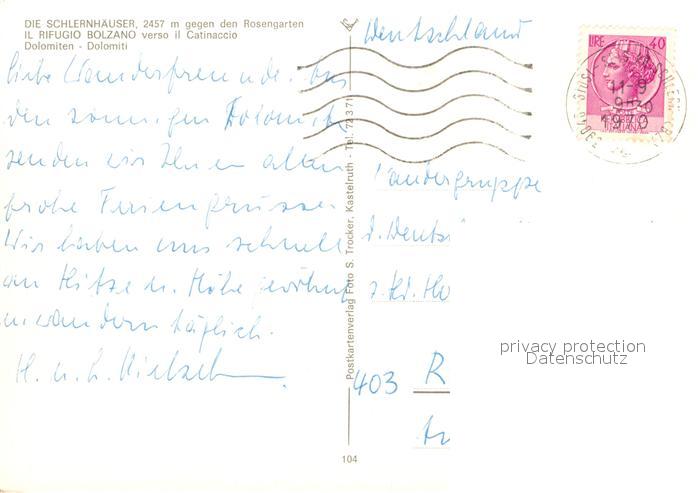 DIE SCHLERNHÄUSER, 2457 m gegen den Rosengarten
IL RIFUGIO BOLZANO verso il Catinaccio
Dolomiten - Dolomiti
Liebe Wanderfreunde. Aus
den sonnigen Dolomiten
senden wir Ihnen allen
frohe Feriengrüsse.
Wir haben uns schnell
an Hitze u. Höhe gewöhnt
u. wandern täglich.
H. u. L.
Postkartenverlag Foto S. Trocker, Kastelruth - Tel. 72371
104
Deutschland
LIRE 40
11-9
1970
Wandergruppe
d. Deuts
403 R
privacy protection
Datenschutz